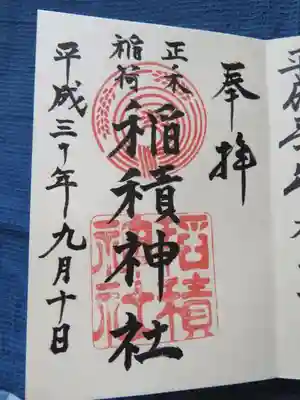 奉拝
正一位
稲荷
稲積神社
稲積
神社
平成三十年九月十日